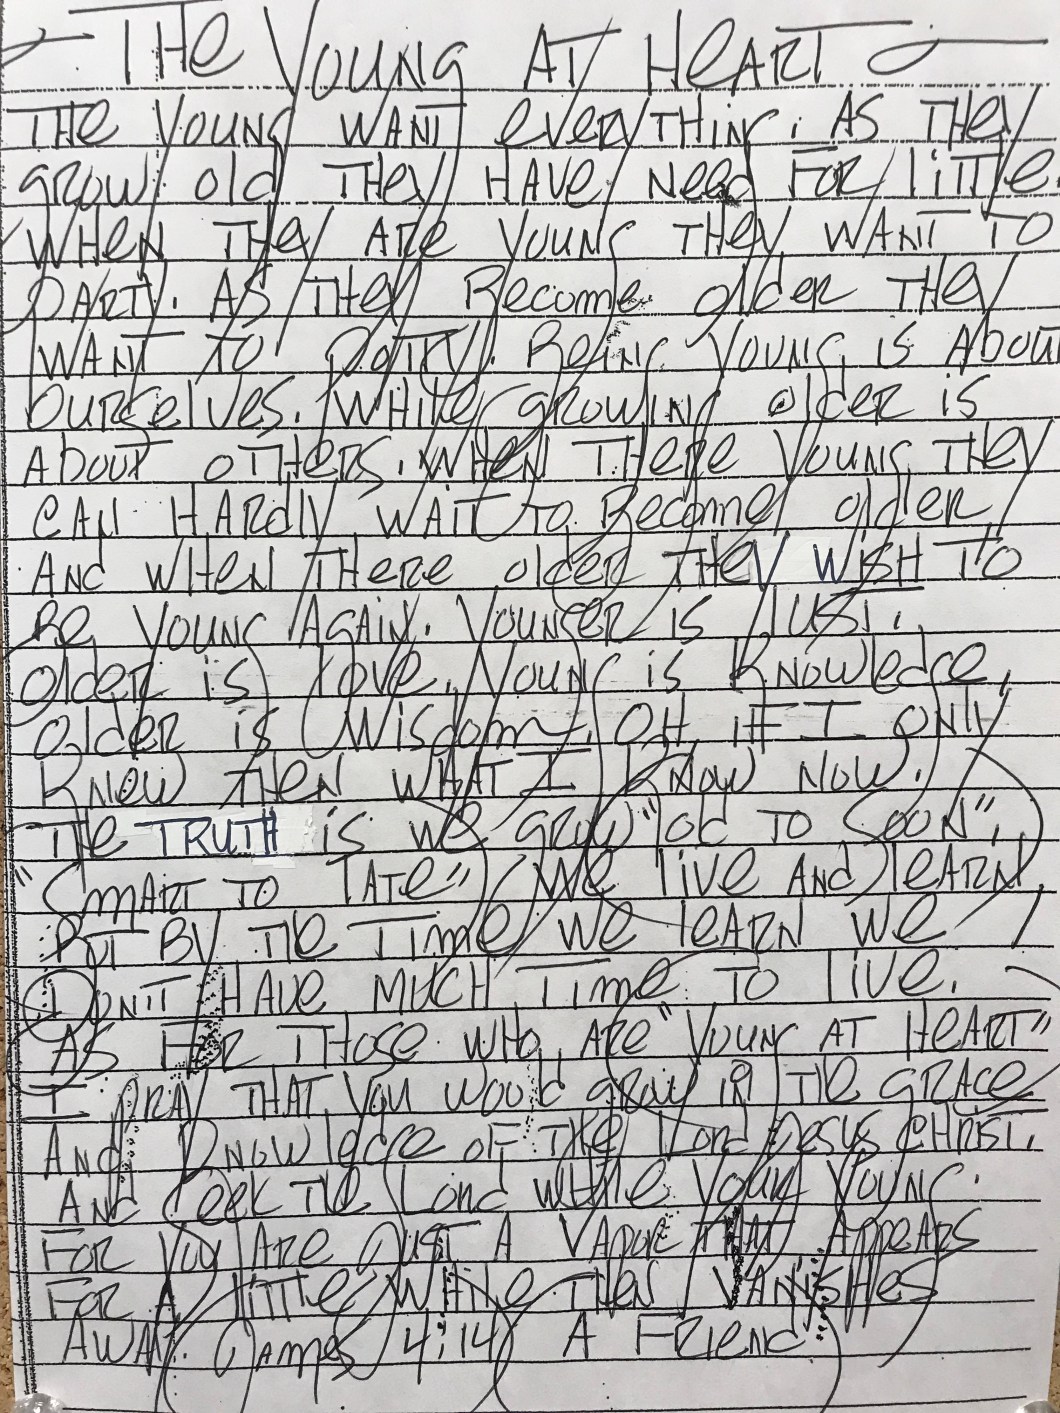 THE YOUNG AT HEART
THE YOUNG WANT EVERYTHING. AS THEY
GROW OLD THEY HAVE NEED FOR LITTLE.
WHEN THEY ARE YOUNG THEY WANT TO
PARTY. AS THEY BECOME OLDER THEY
WANT TO POTTY. BEING YOUNG IS ABOUT
OURSELVES. WHILE GROWING OLDER IS
ABOUT OTHERS. WHEN THERE YOUNG THEY
CAN HARDLY WAIT TO BECOME OLDER
AND WHEN THERE OLDER THEY WISH TO
BE YOUNG AGAIN. YOUNGER IS LUST.
OLDER IS LOVE. YOUNG IS KNOWLEDGE,
OLDER IS WISDOM. OH IF I ONLY
KNEW THEN WHAT I KNOW NOW.
THE TRUTH IS WE GROW "OLD TO SOON",
"SMART TO LATE" WE LIVE AND LEARN,
BUT BY THE TIME WE LEARN WE
DON'T HAVE MUCH TIME TO LIVE.
AS FOR THOSE WHO ARE "YOUNG AT HEART"
I PRAY THAT YOU WOULD GROW IN THE GRACE
AND KNOWLEDGE OF THE LORD JESUS CHRIST.
AND SEEK THE LORD WHILE YOUR YOUNG.
FOR YOU ARE JUST A VAPOR THAT APPEARS
FOR A LITTLE WHILE THEN VANISHES
AWAY. JAMES 4:14 A FRIEND